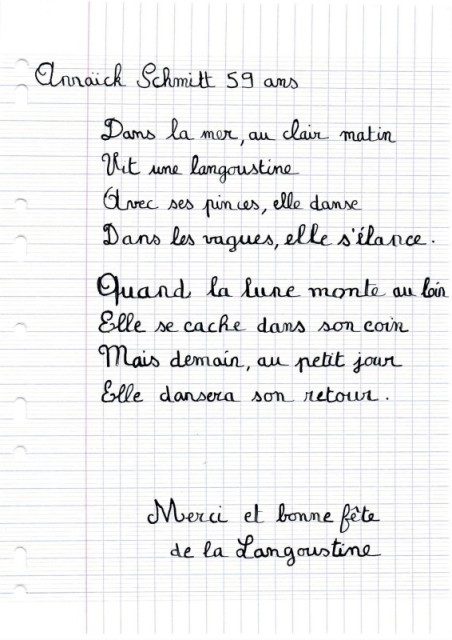 Annaïck Schmitt 59 ans
Dans la mer, au clair matin
Vit une langoustine
Avec ses pinces, elle danse
Dans les vagues, elle s'élance.
Quand la lune monte au loin
Elle se cache dans son coin
Mais demain, au petit jour
Elle dansera son retour.
Merci et bonne fête
de la Langoustine